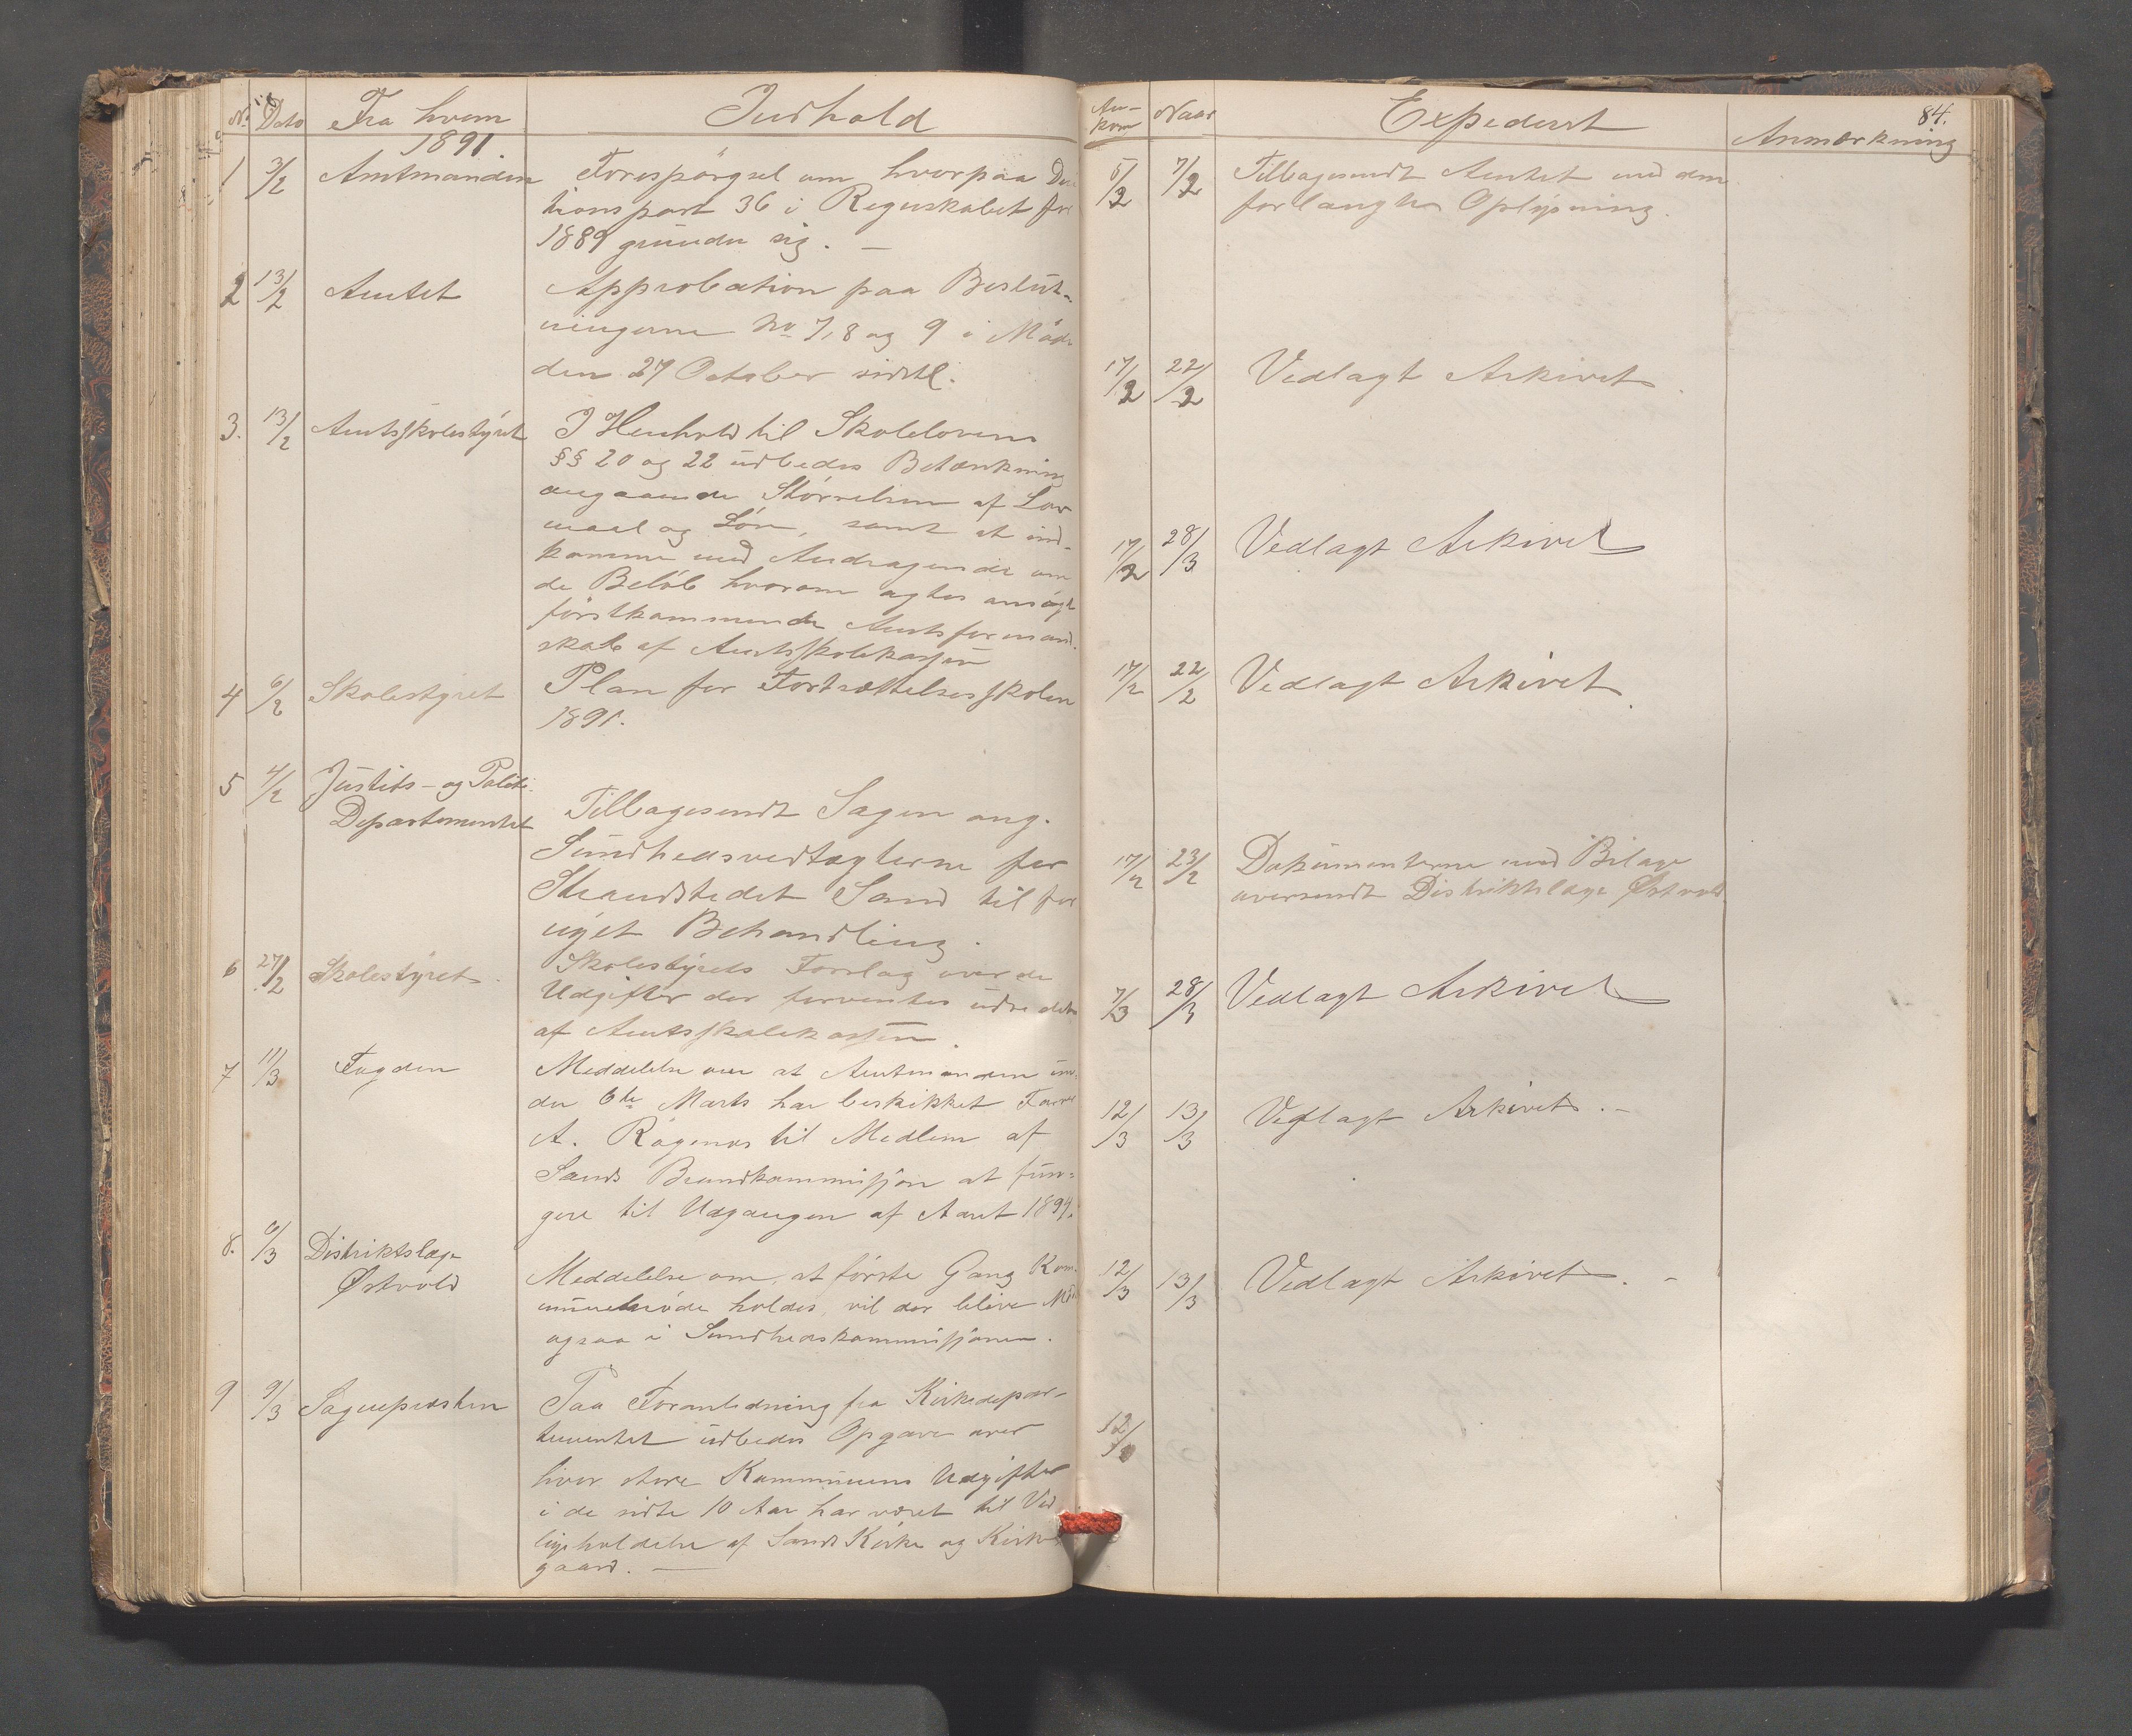 No. Dato Fra hvem Indhold
1891.
1 3/2 Amtmanden Forespörgsel om hvorpaa De-
tionspost 36 i Regnskabet for
1889 grunder sig. —
2 13/2 Amtet Approbation paa Beslut-
ningerne No 7, 8 og 9 i Möde
den 27 October sidstl.
3. 13/2 Amtsskolestyret I Henhold til Skolelovens
§§ 20 og 22 udbedes Betænkning
angaaende Störrelsen af Lov
maal og Lön, samt at ind-
komme med Andragende om
de Belöb hvorom agtes ansögt
förstkommende Amtsformand-
skab af Amtsskolekassen
4 6/2 Skolestyret Plan for Fortsættelsesskolen
1891.
5 4/2 Justits- og Politi-
Departementet Tilbagesendt Sagen ang.
Sundhedsvedtægterne for
Strandstedet Sand til for
nyet Behandling.
6 27/2 Skolestyret. Skolestyrets Forslag over de
Udgifter der forventes udredet
af Amtsskolekassen.
7 11/3 Fogden Meddelelse om at Amtmanden un-
der 6te Marts har beskikket
A. Rögenes til Medlem af
Sands Brandkommissjon at fun-
gere til Udgangen af Aaret 1894.
8. 6/3 Distriktslæge
Østvold Meddelelse om, at förste Gang Kom-
munemöde holdes, vil der blive Möde
ogsaa i Sundhedskommissjonen.
9 9/3 Sognepresten Paa Foranledning fra Kirkedepar-
tementet udbedes Opgave over
hvor store Kommunens Udgifter
i de sidste 10 Aar har været til Ved
ligeholdelse af Sands Kirke og Kirke-
gaard. —
An-
kom Naar Expederet Anmærkning 84.
5/2 7/2 Tilbagesendt Amtet med den
forlangte Oplysning.
17/2 22/2 Vedlagt Arkivet.
17/2 28/3 Vedlagt Arkivet
17/2 22/2 Vedlagt Arkivet.
17/2 23/2 Dokumenterne med Bilage
oversendt Distriktslæge Østvold
7/3 28/3 Vedlagt Arkivet
12/3 13/3 Vedlagt Arkivet. –
12/3 13/3 Vedlagt Arkivet. –